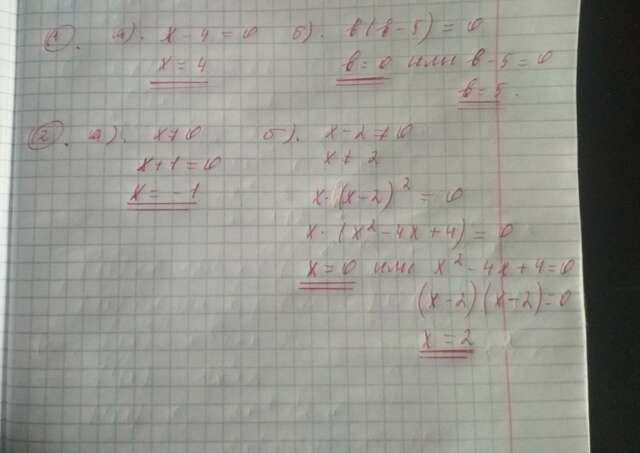 ① . а). x - 4 = 0
x = 4
б). b(b - 5) = 0
b = 0 или b - 5 = 0
b = 5.
② . а). x ≠ 0
x + 1 = 0
x = -1
б). x - 2 ≠ 0
x ≠ 2
x · (x - 2)² = 0
x · (x² - 4x + 4) = 0
x = 0 или x² - 4x + 4 = 0
(x - 2)(x - 2) = 0
x = 2